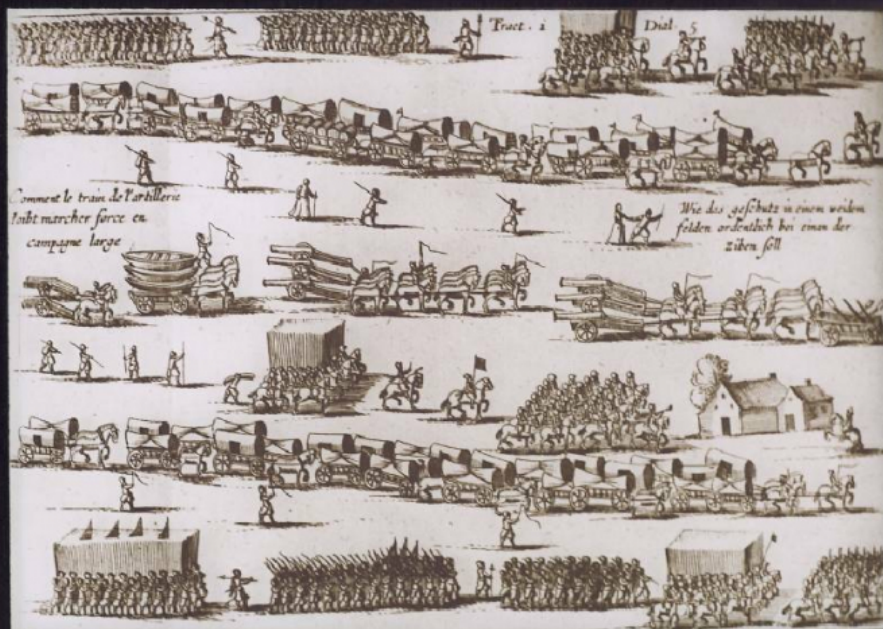 Tract. 1 Dial. 5
Comment le train de l'artillerie
doibt marcher force en
campagne large
Wie das geschutz in einem weidem
felden ordentlich bei einan der
ziben soll